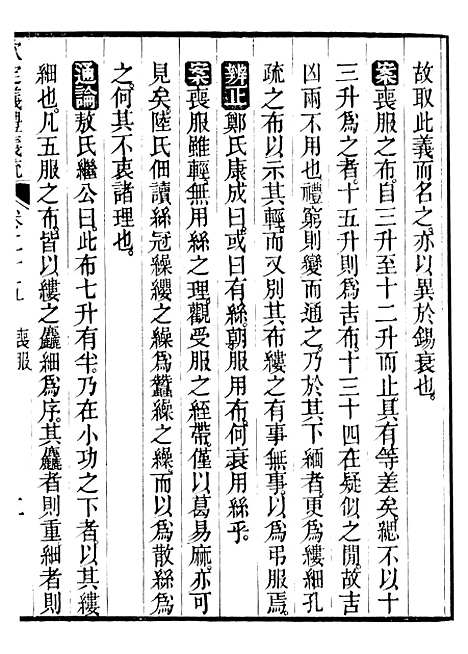 故取此義而名之亦以異於錫衰也
案喪服之布自三升至十二升而止其有等差矣緦不以十
三升爲之者十五升則爲吉布十三十四在疑似之閒故吉
凶兩不用也禮窮則變而通之乃於其下緬者更爲縷細孔
疏之布以示其輕而又別其布縷之有事無事以爲弔服焉
辨正鄭氏康成曰或曰有絲朝服用布何衰用絲乎
案喪服雖輕無用絲之理觀受服之絰帶僅以葛易麻亦可
見矣陸氏佃讀絲冠繰纓之繰爲蠶繰之繰而以爲散絲爲
之何其不衷諸理也
通論敖氏繼公曰此布七升有半乃在小功之下者以其縷
細也凡五服之布皆以縷之麤細爲序其麤者則重細者則
欽定儀禮義疏 卷二十五 喪服